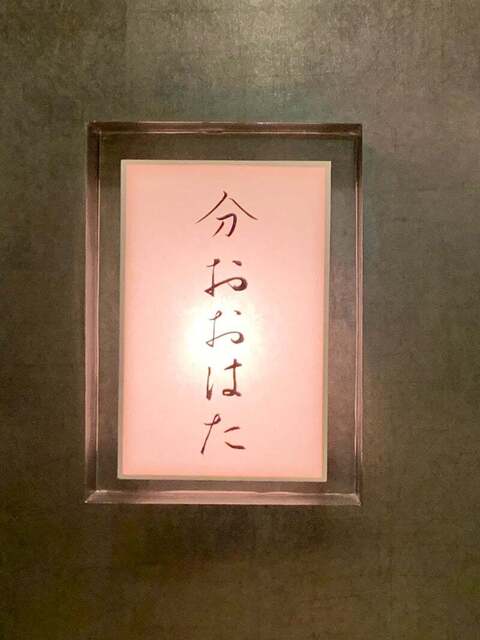 分おおはた